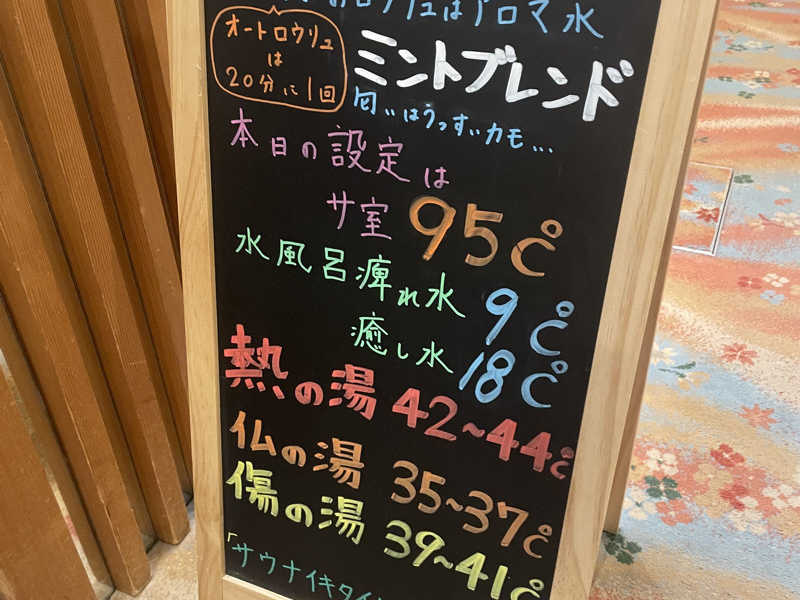 ロウリュはアロマ水
オートロウリュ
は
20分に1回
ミントブレンド
匂いはうっすいカモ…
本日の設定は
サ室 95℃
水風呂 痺れ水 9℃
癒し水 18℃
熱の湯 42~44℃
仏の湯 35~37℃
傷の湯 39~41℃
「サウナイキタイ